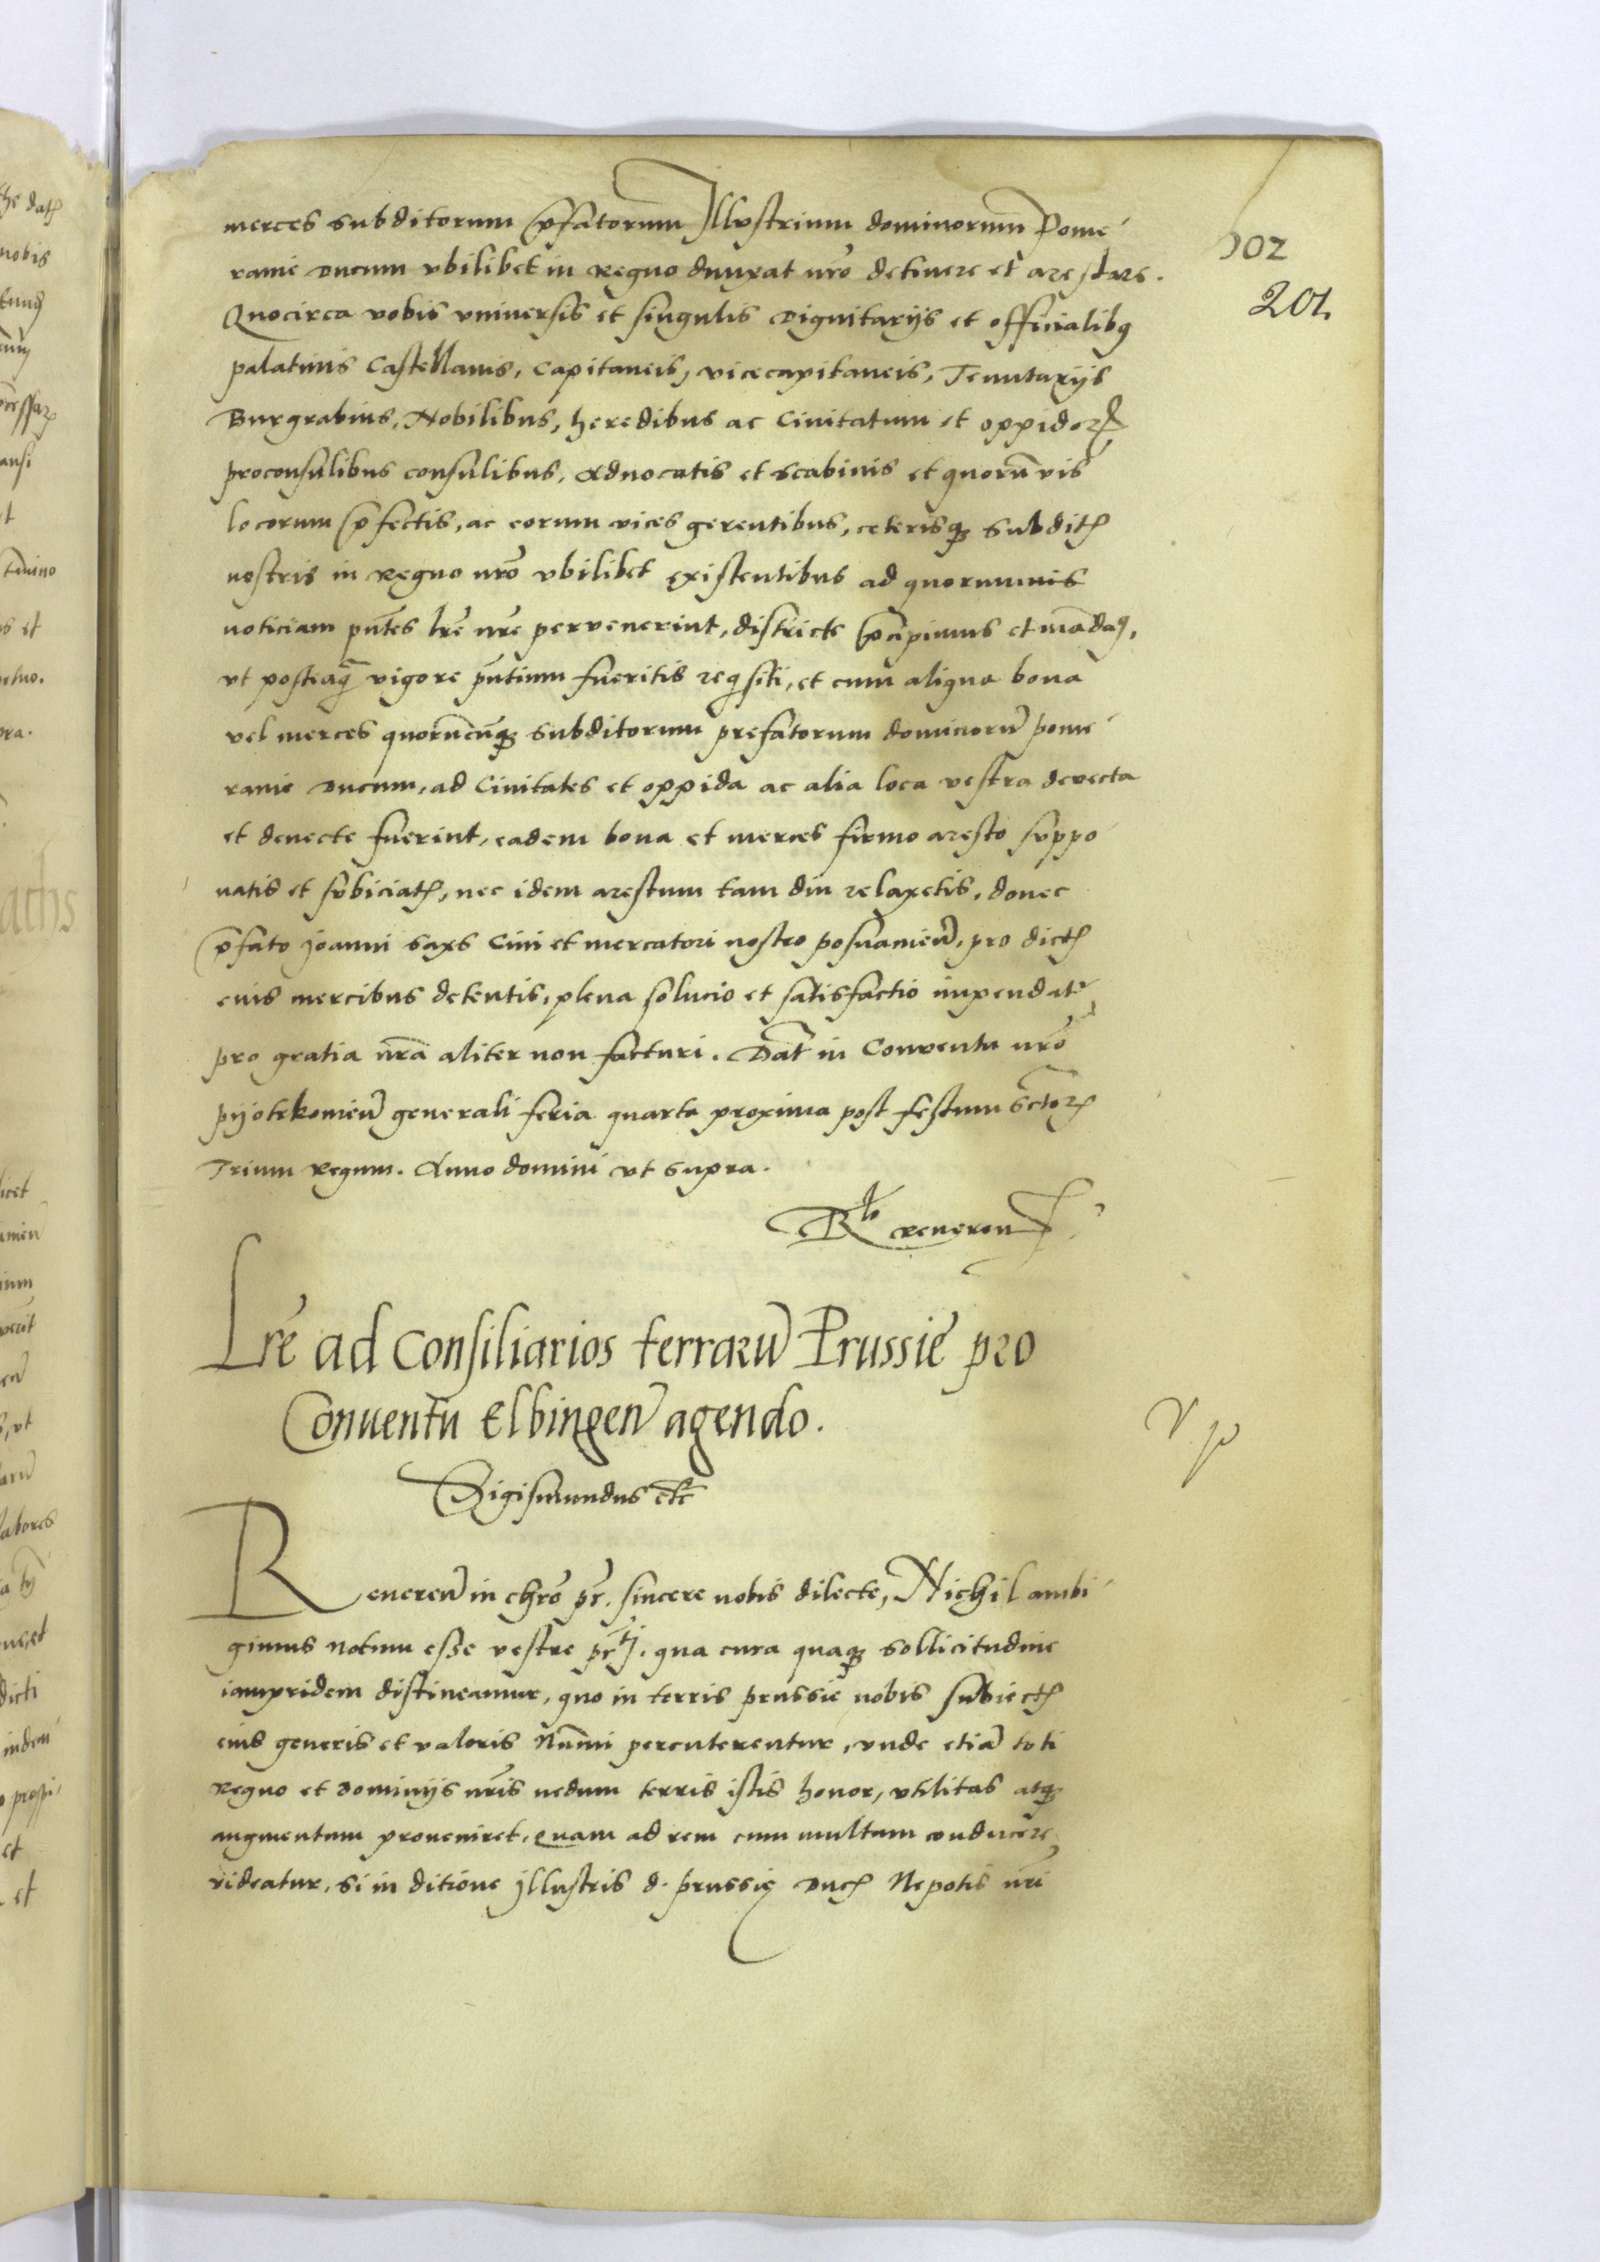 merces subditorum p̄fatorum Illustrium dominorum Pome
202
ranie Ducum vbilibet in Regno duntaxat nr̄o detinere et arestare.
201.
Quocirca vobis vniuersis et singulis Dignitarijs et officialibꝫ
palatinis Castellanis, Capitaneis, vicecapitaneis, Tenutarijs
Burgrabiis, Nobilibus, heredibus ac Ciuitatum et oppidoꝝ
proconsulibus consulibus, Aduocatis et scabinis et quorūvis
locorum p̄fectis, ac eorum vices gerentibus, ceterisqꝫ subditꝭ
nostris in Regno nr̄o vbilibet existentibus ad quorumuis
noticiam pn̄tes lr̄e nr̄e pervenerint, districte p̄cipimus et mādaꝰ,
vt postꝗ̄ vigore pn̄tium fueritis reqͥsiti, et cum aliqua bona
vel merces quorūcūqꝫ subditorum prefatorum dominorū pome
ranie Ducum, ad Ciuitates et oppida ac alia loca vestra devecta
et deuecte fuerint, eadem bona et merces firmo aresto suppo
natis et subiciatꝭ, nec idem arestum tam diu relaxetis, donec
p̄fato Joanni saxs Ciui et mercatori nostro posnamien̄, pro dictꝭ
eius mercibus detentis, plena solucio et satisfactio impendatꝛ
pro gratia nr̄a aliter non facturi. Dat̄ in Conventu nr̄o
pyotrkomien̄ generali feria quarta proxima post festum Sctoꝝ
Trium Regum. Anno domini vt supra.
Rlo reueren
Lr̄e ad Consiliarios terrarū Prussie pro
Conuentu Elbingen̄ agendo.
Sigismundus etc̄
Reueren̄ in chrō pr̄. sincere nobis dilecte, Nichil ambi
gimus notum esse vestre pr̄tj. qua cura quaqꝫ sollicitudine
iampridem distineamur, quo in terris prussie nobis subiectꝭ
eius generis et valoris Nūmi percuterentur, vnde etiā toti
Regno et Dominijs nr̄is nedum terris istis honor, vtilitas atqꝫ
augmentum proveniret, quam ad rem cum multum conducere
videatur, si in ditione Jllustris d. prussię Ducꝭ Nepotis nr̄i